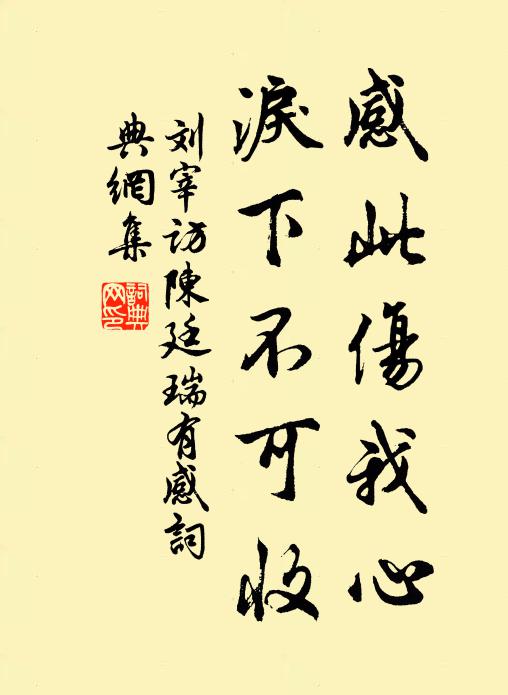 感此傷我心
淚下不可收
刘宰访陳廷瑞有感詞
典網集
詞典网印